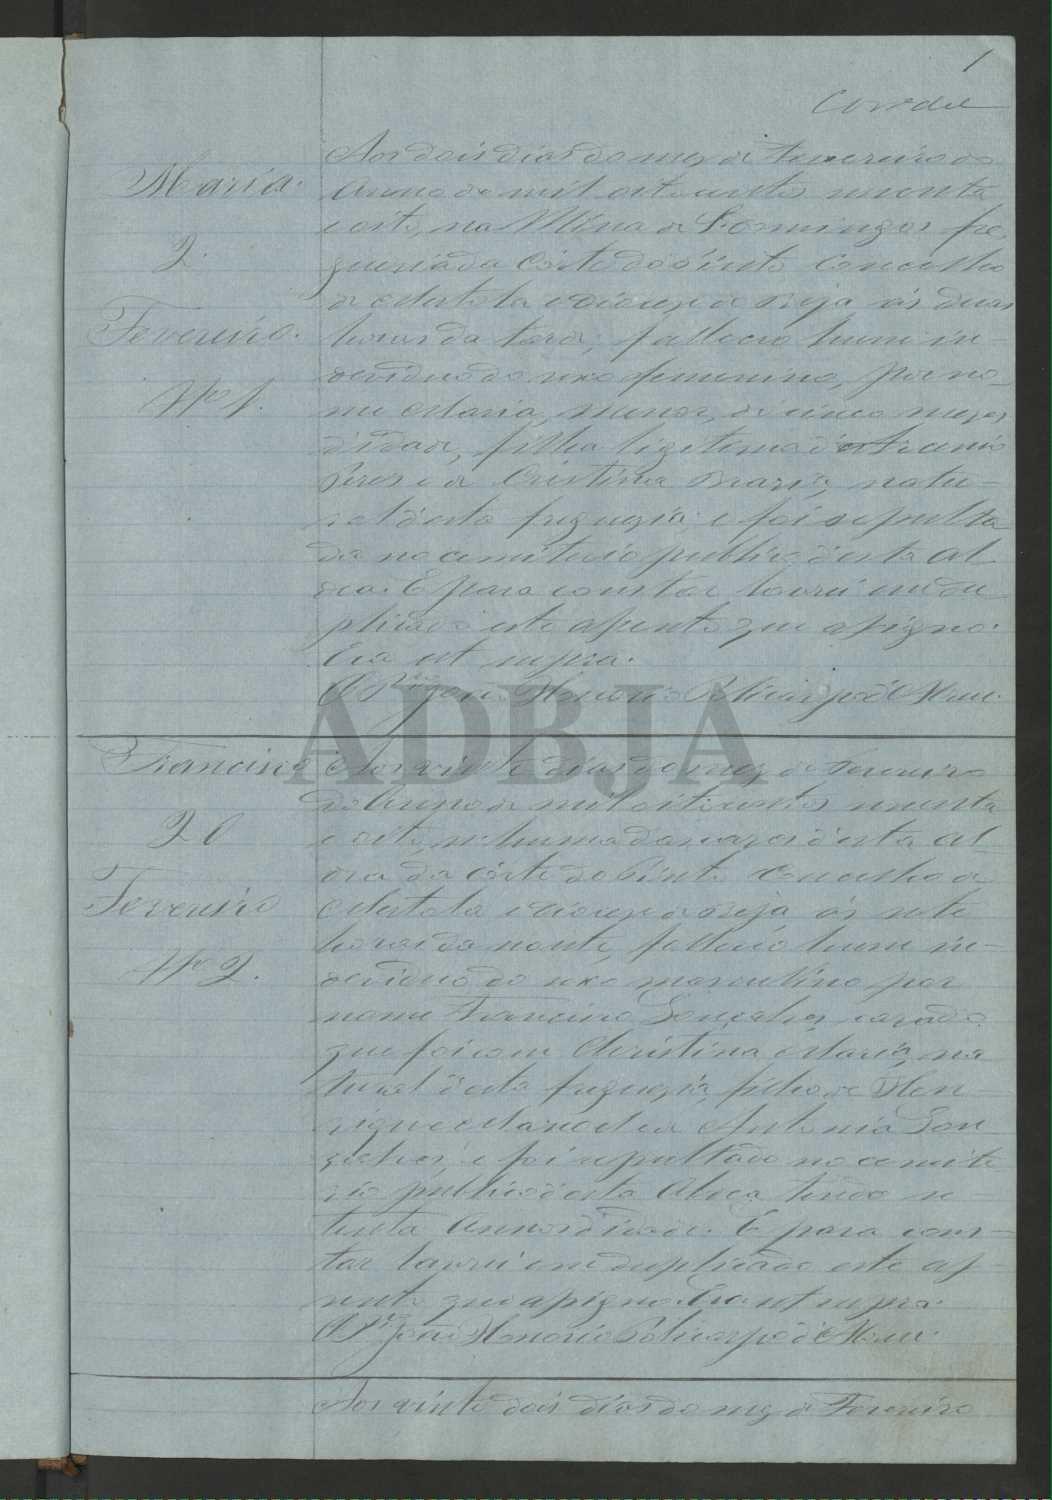 1
Maria.
2.
Fevereiro.
Nº 1.
Aos dois dias do mez de Fevereiro do
Anno de mil oito centos noventa
e oito, na Mina de S. Domingos fre
guesia da Corte do Pinto Concelho
de Mertola e diocese de Beja ás duas
horas da tarde, falleceo hum in-
deviduo do sexo femenino, por no-
me Maria, menor, de cinco mezes
d'idade, filha legitima de
Pires e de Cristina Maria, natu-
ral desta freguesia; e foi sepulta
da no cemiterio publico d'esta al
dea. E para constar lavrei em du
plicado este assento que assigno.
Era ut supra.
O P. João Honorio Policarpo d'
ADBJA
Francisco
20
Fevereiro
Nº 2.
Aos vinte dias do mez de Fevereiro
do Anno de mil oito centos noventa
e oito, n'huma das casas d'esta al
dea da Corte do Pinto Concelho de
Mertola e diocese de Beja ás sete
horas da noute, falleceo hum in-
deviduo do sexo masculino por
nome Francisco Gonçalves, casado
que foi com Christina Maria, na
tural d'esta freguesia, filho de Hen-
rique Manoel e de Antonia Gon
çalves; e foi sepultado no cemite
rio publico desta Aldea tendo se-
tenta Annos d'idade. E para cons-
tar lavrei em duplicado este as-
sento que assigno. Era ut supra.
O P. João Honorio Policarpo d'
Aos vinte dois dias do mez de Fevereiro